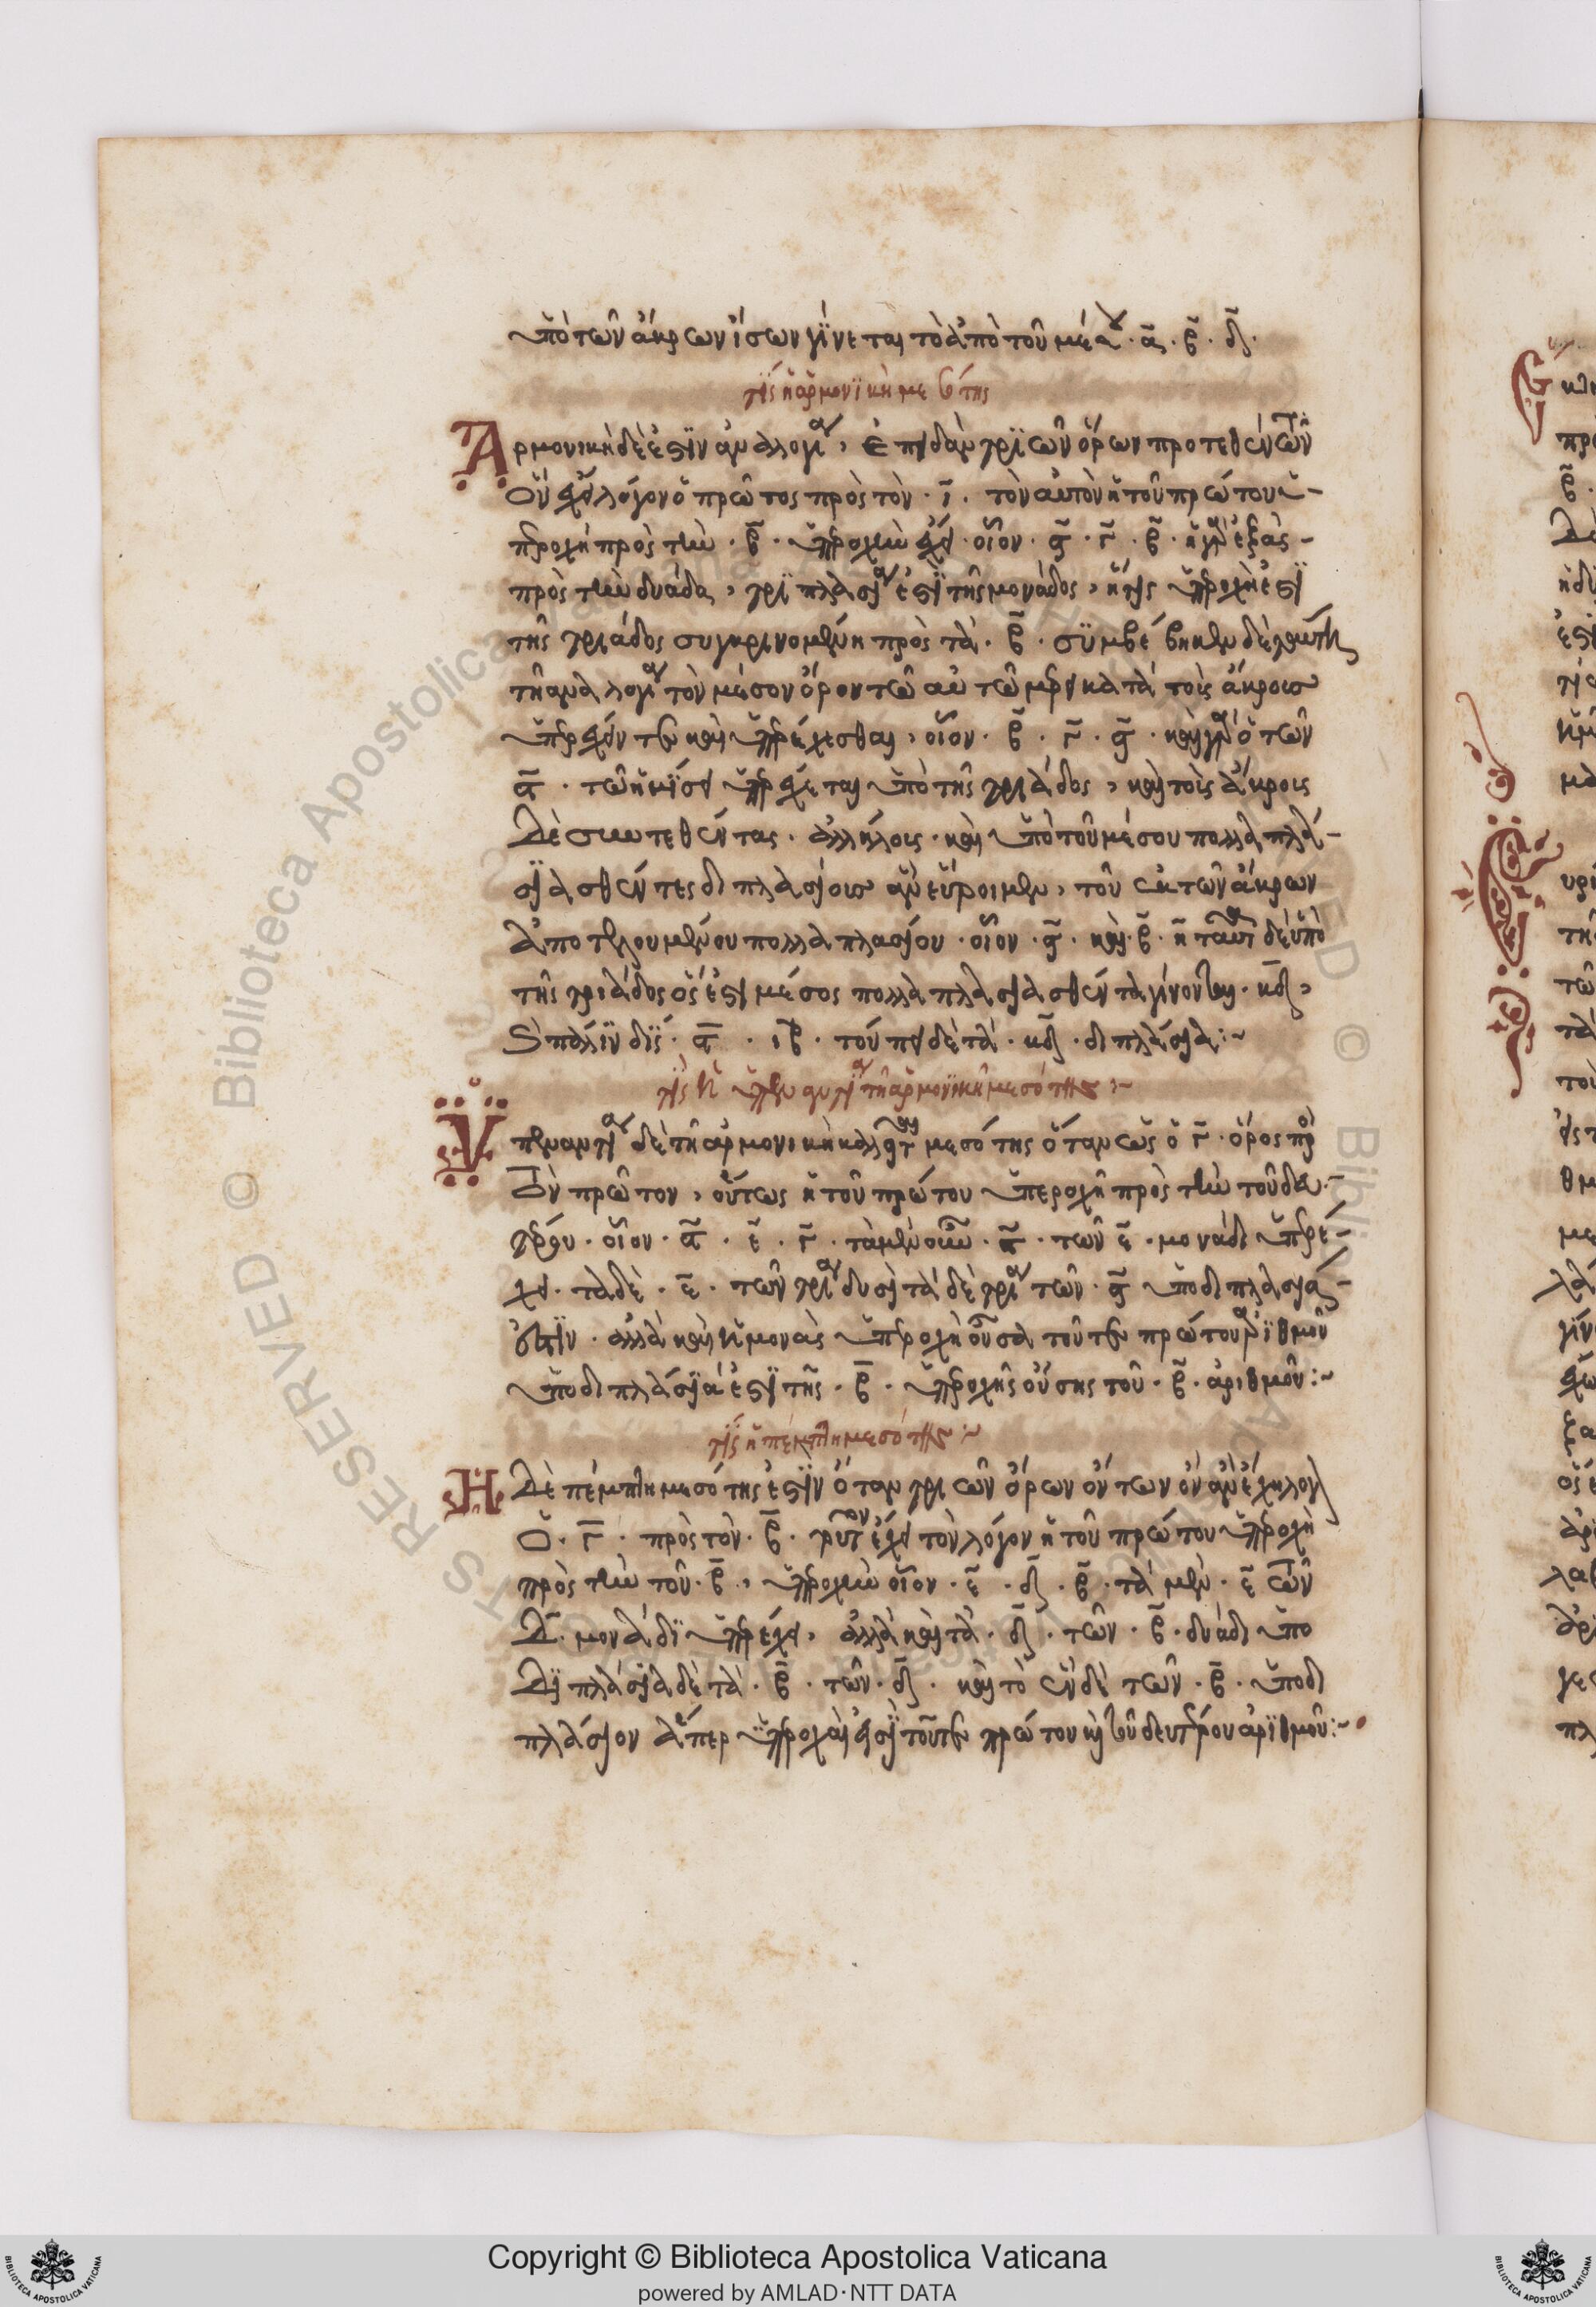 ὑπὸ τῶν ἄκρων ἴσων γίνεται τὸ ἀπὸ τοῦ μέσου · α · β · δ ·
τίς ἡ ἁρμονικὴ μεσότης
Ἁρμονικὴ δέ ἐστιν ἀναλογία, ἐπειδὰν τριῶν ὅρων προτεθέντων
ὃν ἔχει λόγον ὁ πρῶτος πρὸς τὸν · γ · τὸν αὐτὸν ἡ τοῦ πρώτου ὑ-
περοχὴ πρὸς τὴν · β · ὑπεροχὴν ἔχει · οἷον · ϛ · γ · β · ἡ γὰρ ἑξὰς
πρὸς τὴν δυάδα, τριπλασία ἐστὶ τῆς μονάδος, ἥτις ὑπεροχὴ ἐστὶ
τῆς τριάδος συγκρινομένη πρὸς τὰ · β · συμβέβηκεν δὲ
τῇ ἀναλογίᾳ τὸν μέσον ὅρον τῷ αὐτῷ μέρει κατὰ τοῖς ἄκροις
ὑπερέχειν τε καὶ ὑπερέχεσθαι, οἷον · β · γ · ϛ · καὶ γὰρ ὁ τῶν
ϛ · τῷ ἡμίσει ὑπερέχεται ὑπὸ τῆς τριάδος, καὶ τοῖς ἄκροις
δὲ συντεθέντας · ἀλλήλοις · καὶ ὑπὸ τοῦ μέσου πολλαπλα-
σιασθέντες διπλασίοις ἂν εὕροιμεν, τοῦ ἐκ τῶν ἄκρων
ἀποτελουμένου πολλαπλασίου · οἷον · ϛ · καὶ · β · η ταῦτα δὲ ὑπὸ
τῆς τριάδος ὅς ἐστι μέσος πολλαπλασιασθέντα γίνονται · κδ,
 πάλιν δὶς · ϛ · ιβ · τούτου δὲ τὰ · κδ · διπλάσια:~
τίς ἡ ὑπεναντία τῇ ἁρμονικῇ μεσότης:~
Ὑπεναντία δὲ τῇ ἁρμονικῇ καλεῖται μεσότης ὅταν ὡς ὁ γ · ὅρος πρὸς
τὸν πρῶτον, οὕτως ἡ τοῦ πρώτου ὑπεροχὴ πρὸς τὴν τοῦ δευ-
τέρου · οἷον · ϛ · ε · γ · τὰ μὲν οὖν · ϛ · τῶν ε · μονάδι ὑπερέ-
χει · τὰ δὲ · ε · τῶν τρία δυσὶ τὰ δὲ τρία τῶν · ϛ ὑποδιπλάσια
ἐστὶν · ἀλλὰ καὶ ἡ μονὰς ὑπεροχὴ οὖσα τοῦ τε πρώτου ἀριθμοῦ
ὑποδιπλασία ἐστὶ τῆς · β · ὑπεροχῆς οὔσης τοῦ · β · ἀριθμοῦ:~
τίς ἡ πέμπτη μεσότης:~
Ἡ δὲ πέμπτη μεσότης ἐστὶν ὅταν τριῶν ὅρων ὄντων ὃν ἂν ἔχῃ λόγον
ὁ · γ · πρὸς τὸν · β · τοῦτον ἔχει τὸν λόγον ἡ τοῦ πρώτου ὑπεροχὴ
πρὸς τὴν τοῦ · β, ὑπεροχὴν οἷον · ε · δ · β · τὰ μὲν · ε τῶν
δ · μονάδι ὑπερέχει, ἀλλὰ καὶ τὰ · δ · τῶν · β · δυάδι ὑπο
διπλάσια δὲ τὰ · β · τῶν · δ · καὶ τὸ ἓν δὲ τῶν · β · ὑποδι
πλάσιον ἅπερ ὑπεροχαὶ εἰσὶ τοῦ τε πρώτου καὶ τοῦ δευτέρου ἀριθμοῦ:~
Copyright © Biblioteca Apostolica Vaticana
powered by AMLAD·NTT DATA